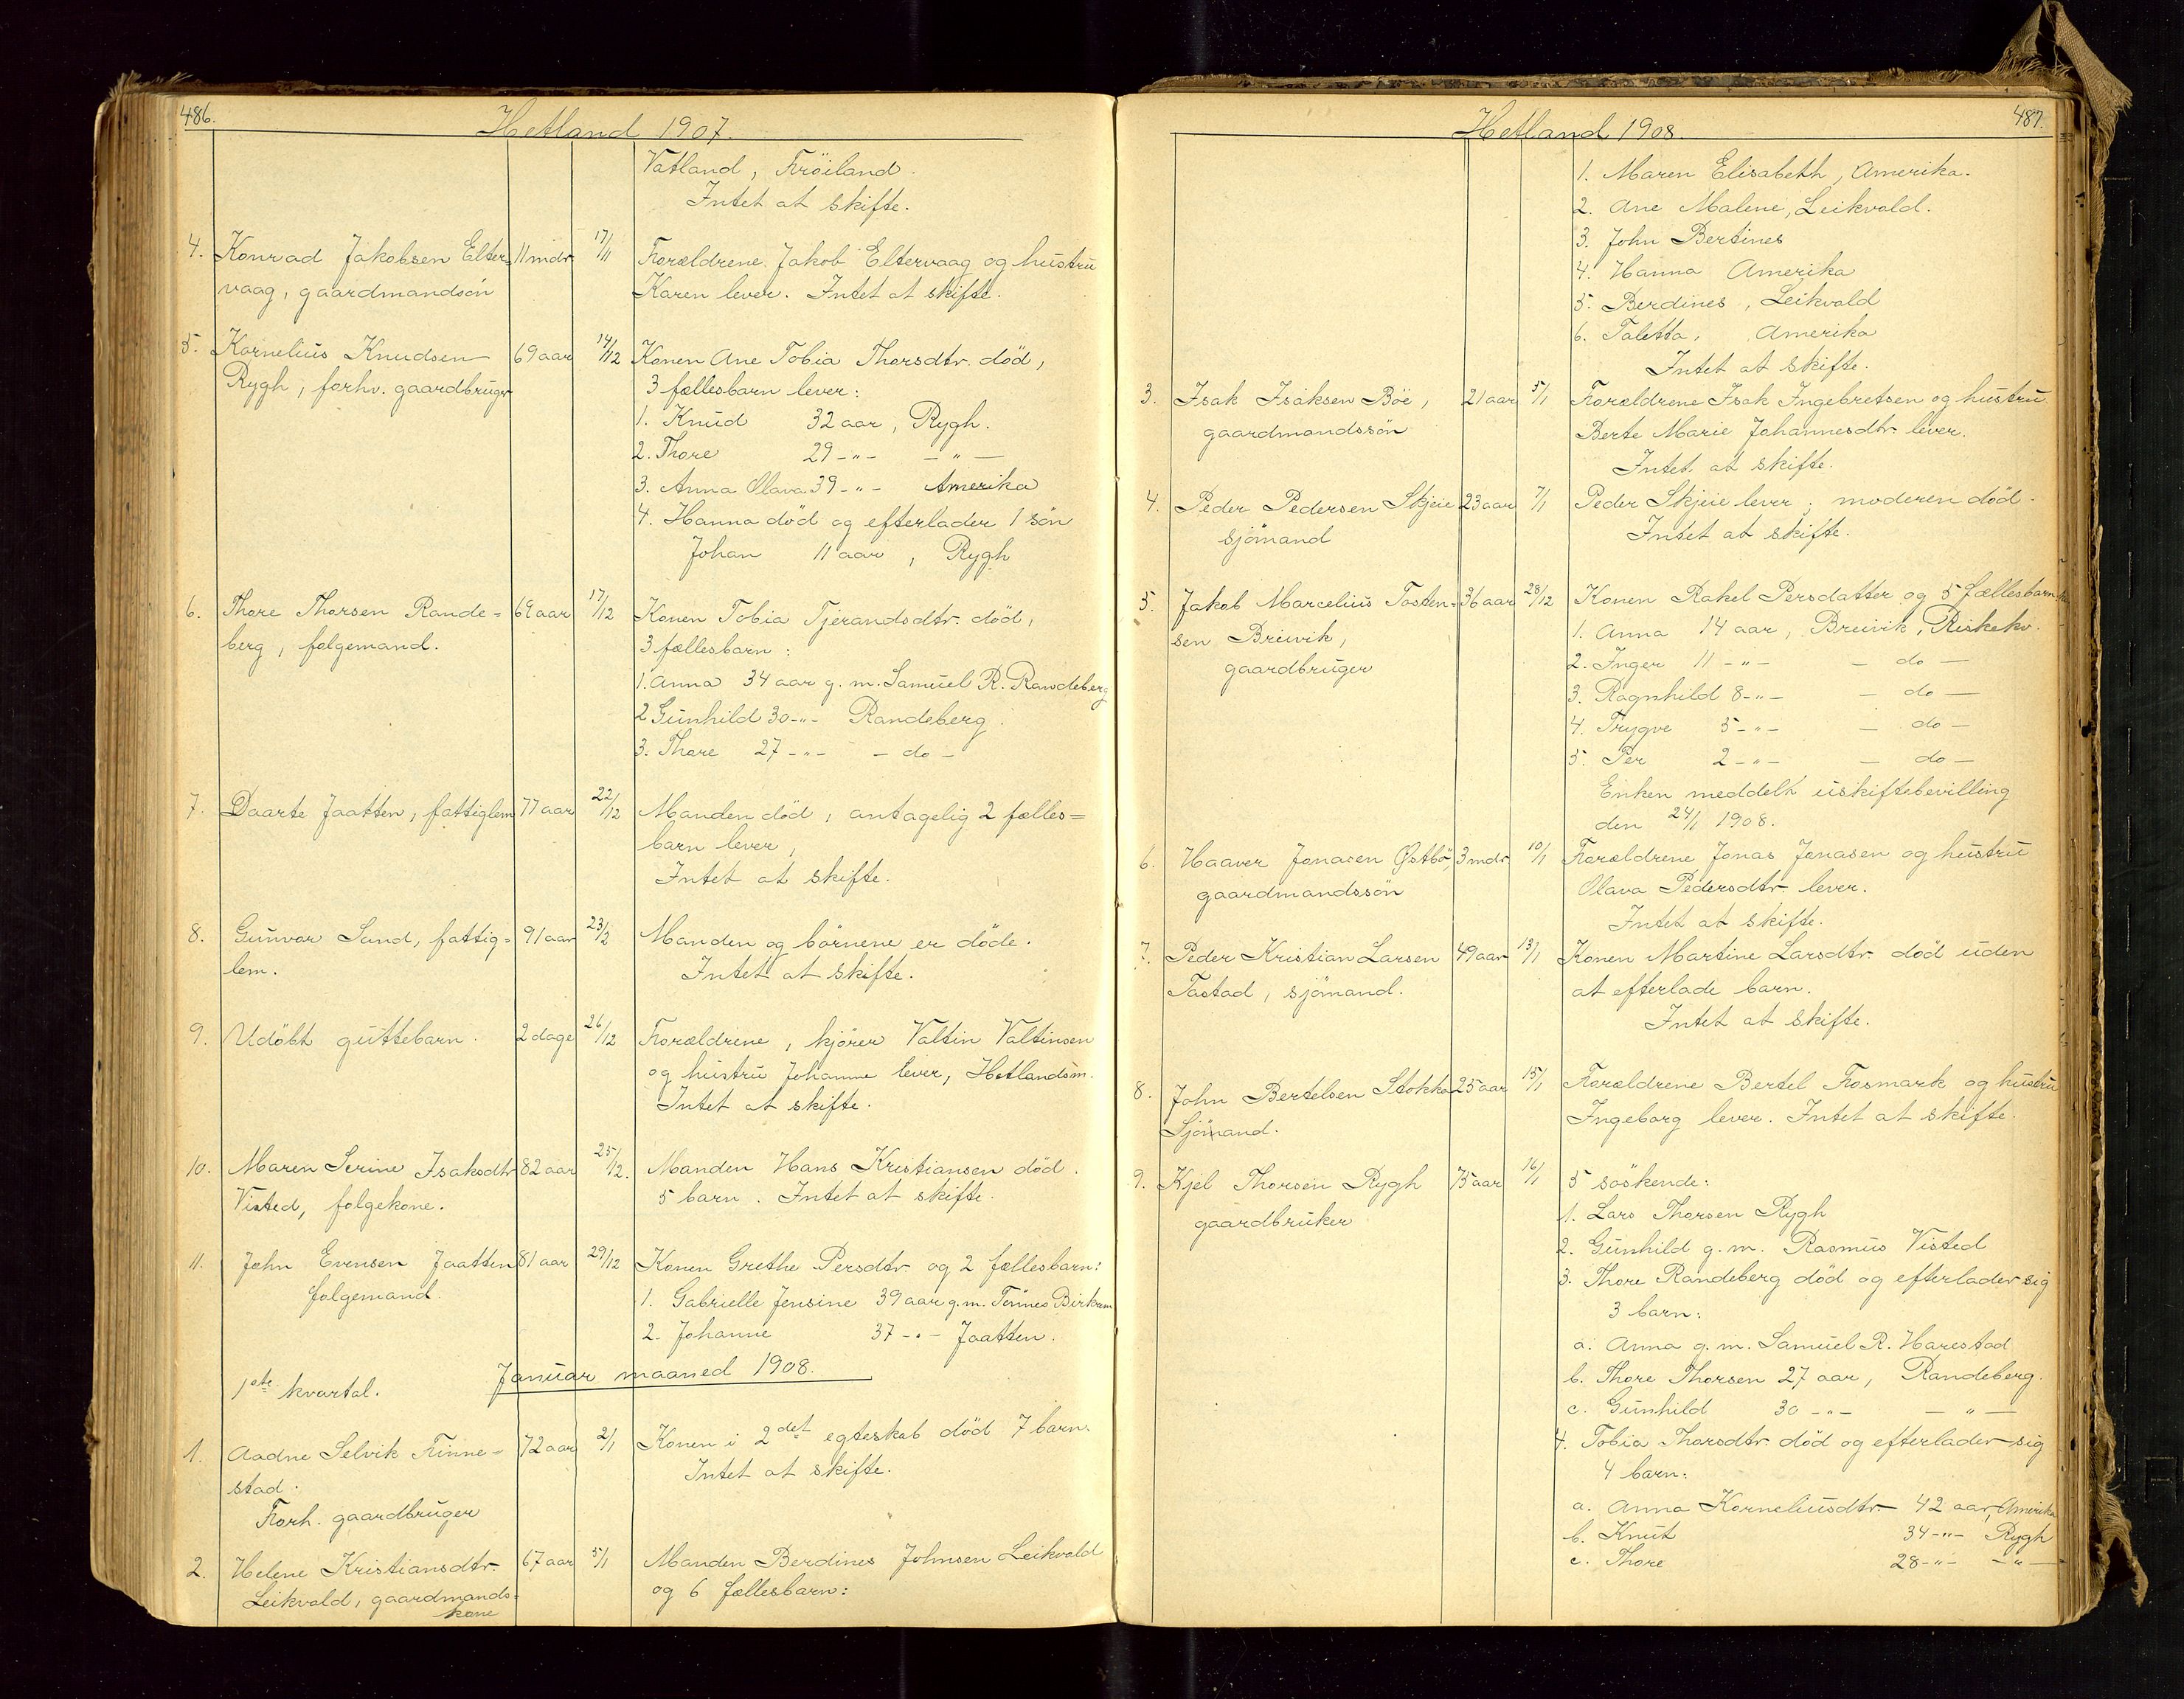 486.
Hetland 1907.
Vatland, Fröiland.
Intet at skifte.
4. Konrad Jakobsen Elter= 11 mdr 17/11 Forældrene Jakob Eltervaag og hustru
vaag, gaardmandsön Karen lever. Intet at skifte.
5. Kornelius Knudsen 69 aar 14/12 Konen Ane Tobia Thorsdtr. död,
Rygh, forhv. gaardbruger 3 fællesbarn lever:
1. Knud 32 aar, Rygh.
2. Thore 29 -"- - " -
3. Anna Olava 39 -"- Amerika
4. Hanna död og efterlader 1 sön
Johan 11 aar, Rygh
6. Thore Thorsen Rande= 69 aar 17/12 Konen Tobia Tjerandsdtr. död,
berg, folgemand. 3 fællesbarn:
1. Anna 34 aar g. m. Samuel R. Randeberg
2 Gunhild 30 -"- Randeberg.
3. Thore 27 -"- - do -
7. Daarte Jaatten, fattiglem 77 aar 22/12 Manden död, antagelig 2 fælles=
barn lever,
Intet at skifte.
8. Gunvor Sand, fattig= 91 aar 23/2 Manden og börnene er döde.
lem. Intet at skifte.
9. Udöbt guttebarn. 2 dage 26/12 Forældrene, kjörer Valtin Valtinsen
og hustru Johanne lever, Hetlandsm.
Intet at skifte.
10. Maren Serine Isaksdtr 82 aar 25/12. Manden Hans Kristiansen död.
Visted, folgekone. 5 barn. Intet at skifte.
11. John Evensen Jaatten 81 aar 29/12 Konen Grethe Persdtr. og 2 fællesbarn:
folgemand. 1. Gabrielle Jensine 39 aar g. m. Tönnes Birkem
2. Johanne 37 -"- Jaatten.
1ste kvartal. Januar maaned 1908.
1. Aadne Selvik Finne= 72 aar 2/1 Konen i 2det egteskab död 7 barn.
stad. Intet at skifte.
Forh. gaardbruger
2. Helene Kristiansdtr. 67 aar 5/1 Manden Berdines Johnsen Leikvold
Leikvold, gaardmands= og 6 fællesbarn:
kone
Hetland 1908.
487.
1. Maren Elisabeth, Amerika.
2. Ane Malene, Leikvold.
3. John Bertines
4. Hanna Amerika
5. Berdines, Leikvold
6. Taletta, Amerika
Intet at skifte.
3. Isak Isaksen Böe, 21 aar 5/1 Forældrene Isak Ingebretsen og hustru
gaardmandssön Berte Marie Johannesdtr. lever.
Intet at skifte.
4. Peder Pedersen Skjeie 23 aar 7/1 Peder Skjeie lever; moderen död.
sjömand Intet at skifte.
5. Jakob Marcelius Tosten= 36 aar 28/12 Konen Rakel Persdatter og 5 fællesbarn
sen Breivik, 1. Anna 14 aar, Breivik, Riskekv.
gaardbruger 2. Inger 11 -"- - do -
3. Ragnhild 8 -"- - do -
4. Trygve 5 -"- - do -
5. Per 2 -"- - do -
Enken meddelt uskiftebevilling
den 24/1 1908.
6. Haaver Jonasen Østbö, 3 mdr 10/1 Forældrene Jonas Jonasen og hustru
gaardmandssön Olava Pedersdtr. lever.
Intet at skifte.
7. Peder Kristian Larsen 49 aar 13/1 Konen Martine Larsdtr. död uden
Tastad, sjömand. at efterlade barn.
Intet at skifte.
8. John Bertelsen Stokka 25 aar 15/1 Forældrene Bertel Fosmark og hustru
Sjömand. Ingeborg lever. Intet at skifte.
9. Kjel Thorsen Rygh 75 aar 16/1 5 söskende:
gaardbruker 1. Lars Thorsen Rygh
2. Gunhild g. m. Rasmus Visted
3. Thore Randeberg död og efterlader sig
3 barn:
a. Anna g. m. Samuel R. Harestad
b. Thore Thorsen 27 aar, Randeberg.
c. Gunhild 30 -"- - " -
4. Tobia Thorsdtr. död og efterlader sig
4 barn:
a. Anna Korneliusdtr. 42 aar, Amerika
b. Knut 34 -"- Rygh
c. Thore 28 -"- - " -